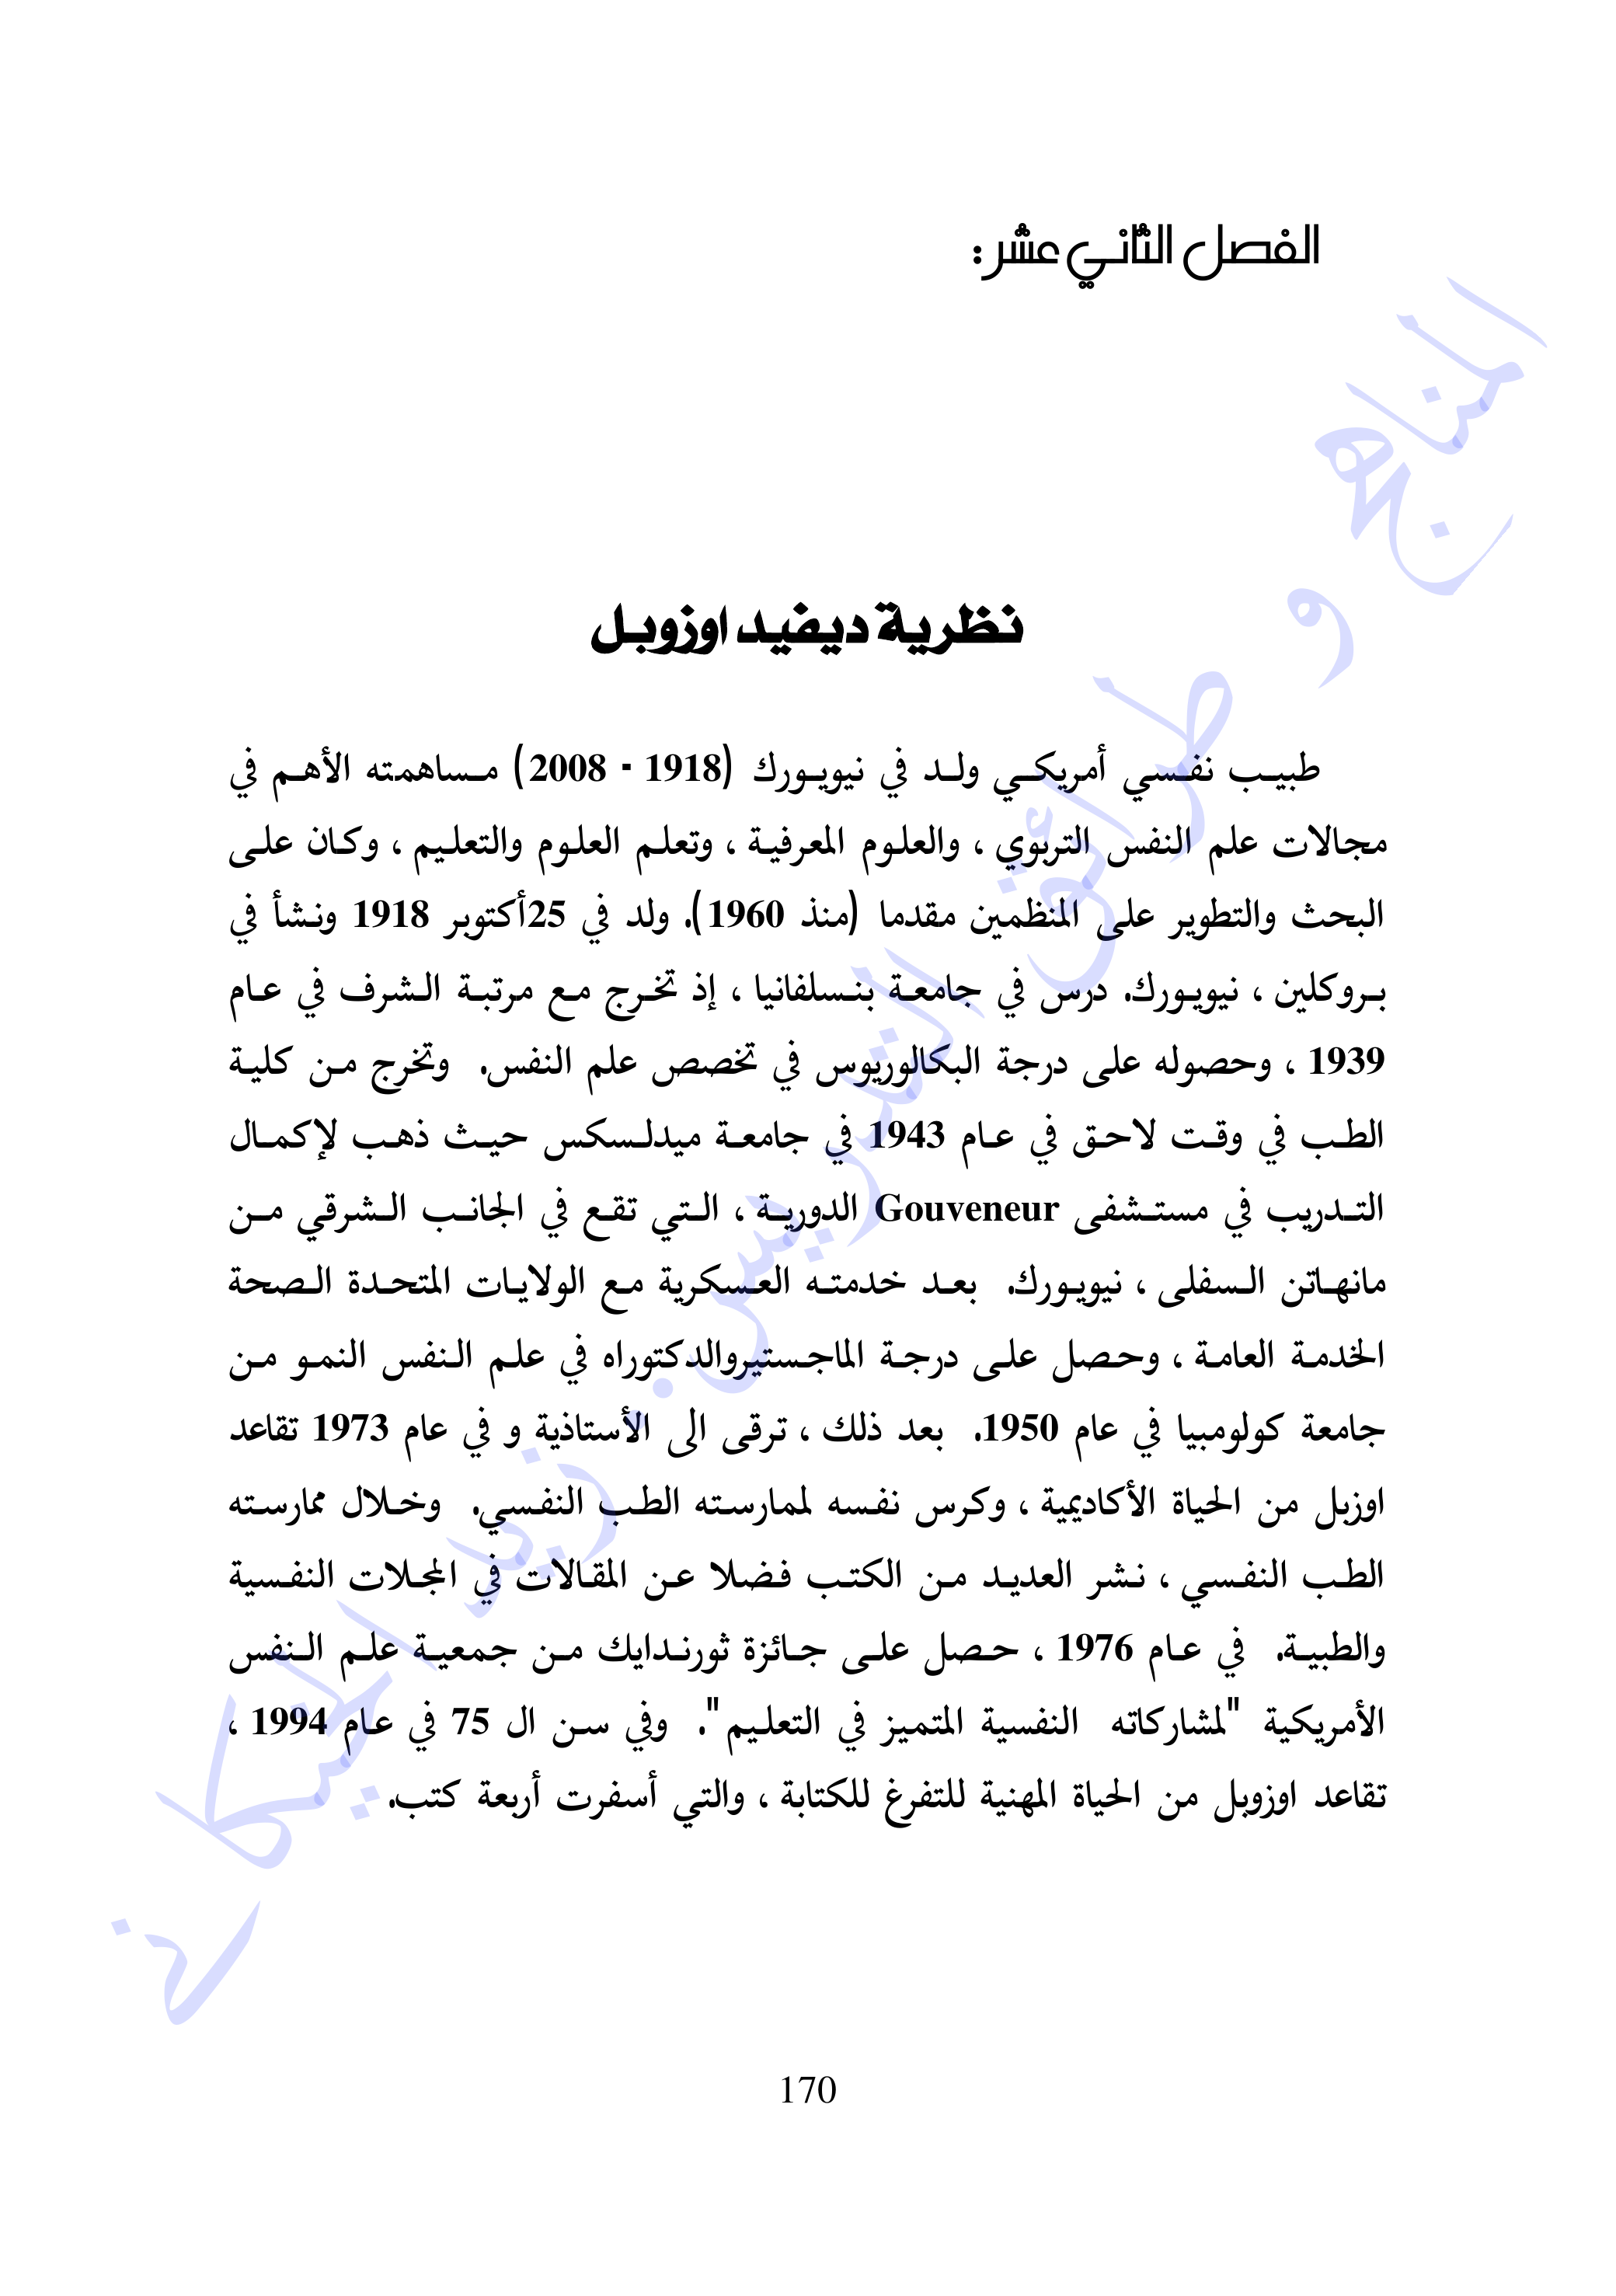 الفصل الثاني عشر:
نظرية ديفيد اوزوبل
طبيب نفسي أمريكي ولد في نيويورك (1918 - 2008) مساهمته الأهم في
مجالات علم النفس التربوي ، والعلوم المعرفية ، وتعلم العلوم والتعليم ، وكان على
البحث والتطوير على المنظمين مقدما (منذ 1960). ولد في 25أكتوبر 1918 ونشأ في
بروكلين ، نيويورك. درس في جامعة بنسلفانيا ، إذ تخرج مع مرتبة الشرف في عام
1939 ، وحصوله على درجة البكالوريوس في تخصص علم النفس. وتخرج من كلية
الطب في وقت لاحق في عام 1943 في جامعة ميدلسكس حيث ذهب لإكمال
التدريب في مستشفى Gouveneur الدورية ، التي تقع في الجانب الشرقي من
مانهاتن السفلى ، نيويورك. بعد خدمته العسكرية مع الولايات المتحدة الصحة
الخدمة العامة ، وحصل على درجة الماجستيروالدكتوراه في علم النفس النمو من
جامعة كولومبيا في عام 1950. بعد ذلك ، ترقى الى الأستاذية و في عام 1973 تقاعد
اوزبل من الحياة الأكاديمية ، وكرس نفسه لممارسته الطب النفسي. وخلال ممارسته
الطب النفسي ، نشر العديد من الكتب فضلا عن المقالات في المجلات النفسية
والطبية. في عام 1976 ، حصل على جائزة ثورندايك من جمعية علم النفس
الأمريكية "لمشاركاته النفسية المتميز في التعليم". وفي سن ال 75 في عام 1994 ،
تقاعد اوزوبل من الحياة المهنية للتفرغ للكتابة ، والتي أسفرت أربعة كتب.
المناهج و طرائق التدريس. زيد الخيكاني
170